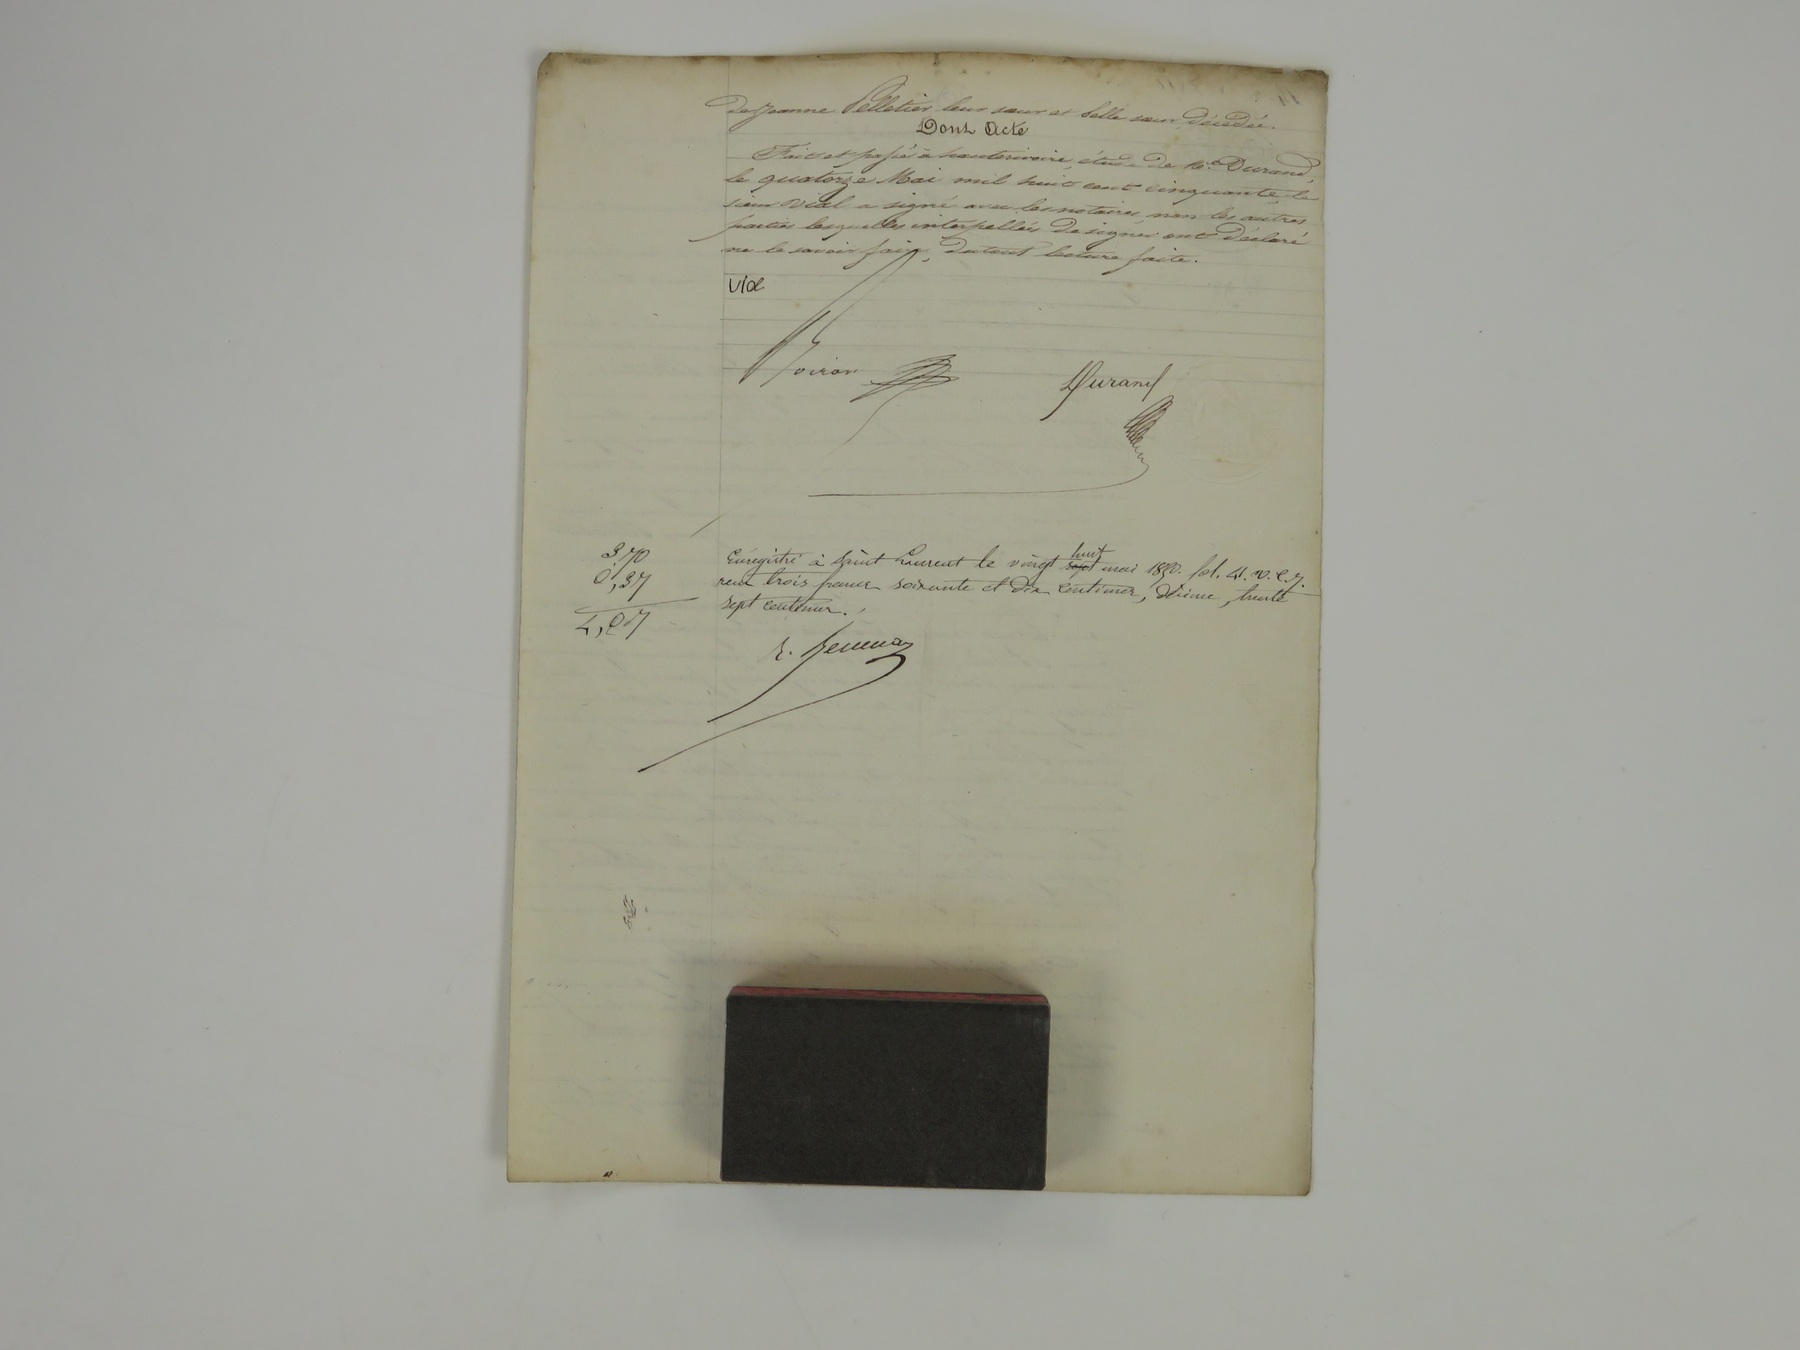 de Jeanne Pelletier leur sœur et belle sœur décédée.
Dont Acte
Fait et passé à hauterivoire, étude de Me. Durand,
le quatorze Mai mil huit cent cinquante, le
sieur Vial a signé avec les notaires, non les autres
parties lesquelles interpellées de signer ont déclaré
ne le savoir faire, du tout lecture faite.
Vial
Boiron Durand
3,70
0,37
4,07
huit
Enregistré à Saint Laurent le vingt sept mai 1850. fol. 41. v. c. 7.
reçu trois francs soixante et dix centimes, décime, trente
sept centimes.